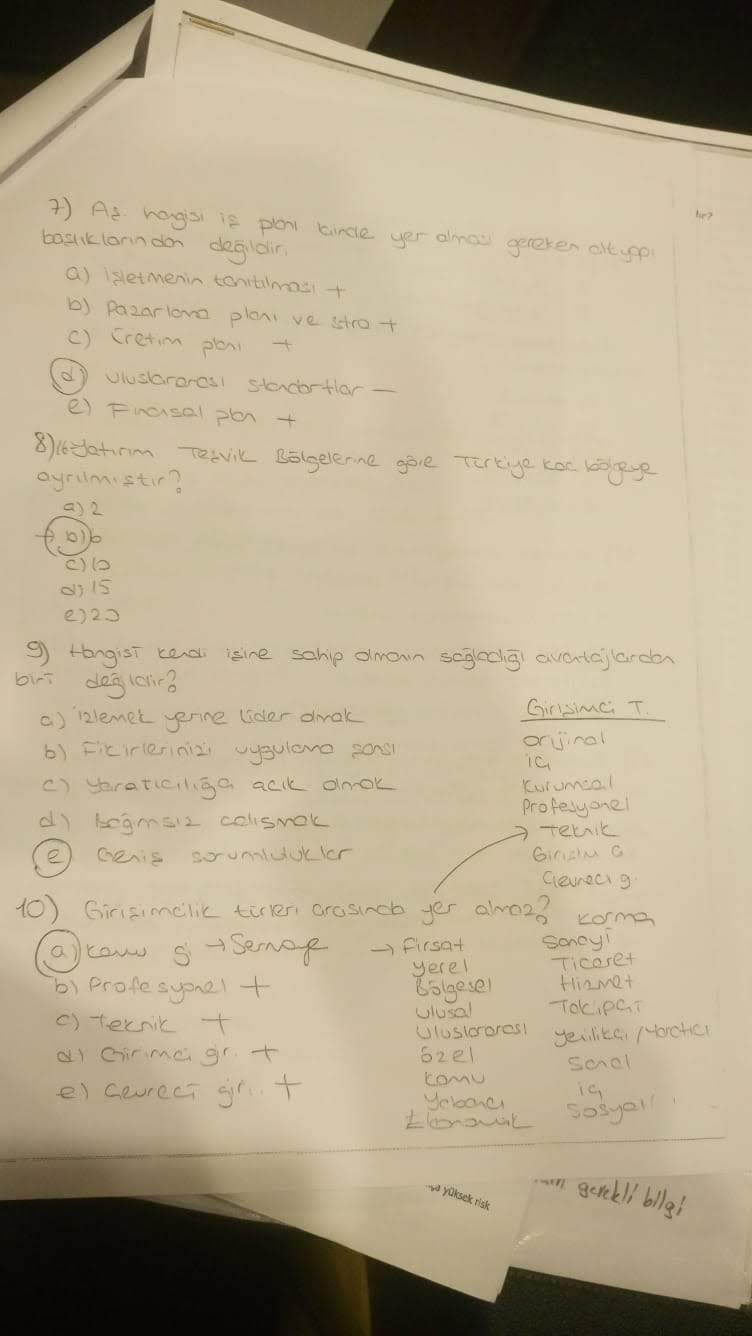 7) Aş. hangisi iş planı içinde yer alması gereken altyapı
başlıklarından değildir.
a) işletmenin tanıtılması +
b) Pazarlama planı ve stra +
c) Üretim planı +
d) Uluslararası standartlar —
e) Finansal plan +
8) Yatırım Teşvik Bölgelerine göre Türkiye kaç bölgeye
ayrılmıştır?
a) 2
→ b) 6
c) 10
d) 15
e) 20
9) Hangisi kendi işine sahip olmanın sağladığı avantajlardan
biri değildir?
a) izlemek yerine lider olmak
b) Fikirlerinizi uygulama şansı
c) Yaratıcılığa açık olmak
d) Bağımsız çalışmak
e) Geniş sorumluluklar
Girişimci T.
orijinal
iç
Kurumsal
Profesyonel
→ Teknik
Girişim G
Çevreci g.
10) Girişimcilik türleri arasında yer almaz?
a) kamu gi → Sermaye
b) Profesyonel +
c) Teknik +
d) Girimci gr. +
e) Çevreci gir.. +
→ Fırsat
yerel
Bölgesel
Ulusal
Uluslararası
özel
kamu
Yabancı
Ekonomik
karma
Sanayi
Ticaret
Hizmet
Takipçi
Sanal
iç
Sosyal
yüksek risk
gerekli bilgi